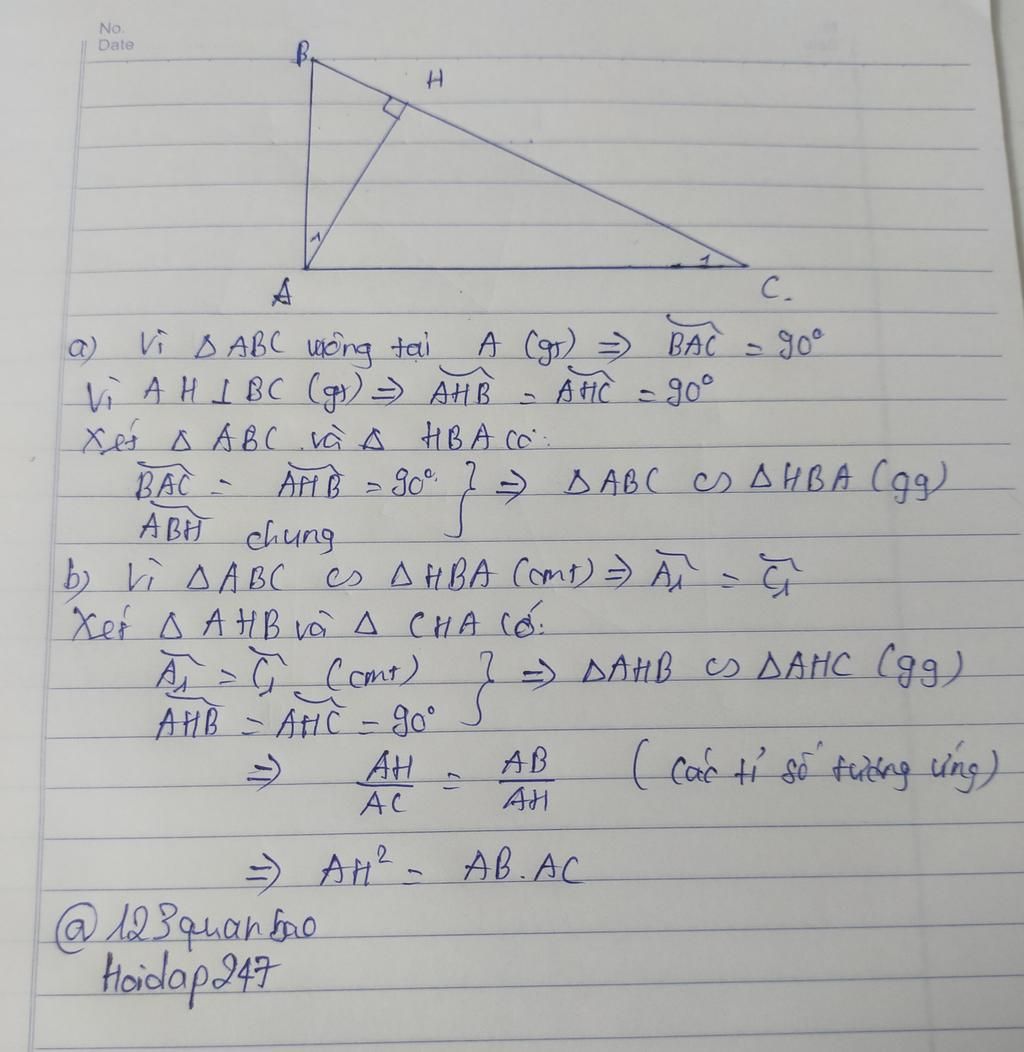 No.
Date
B
H
1
1
A
C.
a) Vì △ABC vuông tại A (gt) ⇒ BAC = 90°
Vì AH ⊥ BC (gt) ⇒ AHB = AHC = 90°
Xét △ ABC và △ HBA có:
BAC = AHB = 90° } ⇒ △ABC ∽ △HBA (gg)
ABH chung
b) Vì △ABC ∽ △HBA (cmt) ⇒ A₁ = C₁
Xét △ AHB và △ CHA có:
A₁ = C₁ (cmt) } ⇒ △AHB ∽ △AHC (gg)
AHB = AHC = 90°
⇒ AH/AC = AB/AH (các tỉ số tương ứng)
⇒ AH² = AB.AC
@123quanbao
Hoidap247